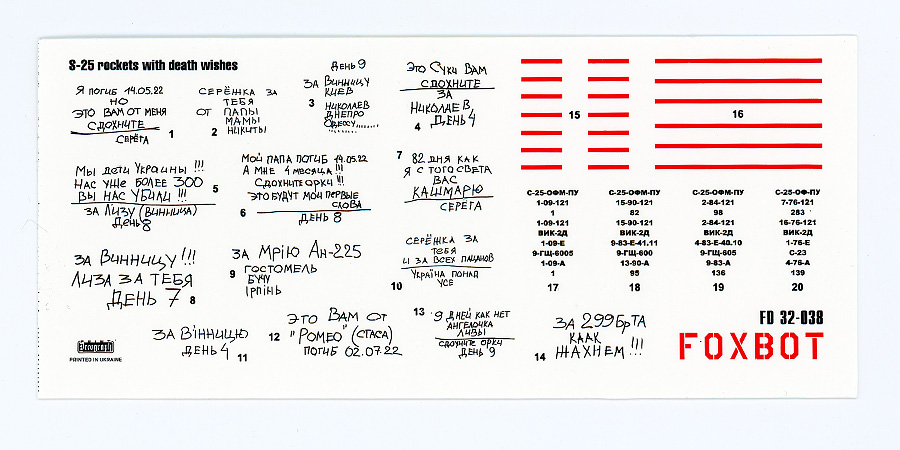 S-25 rockets with death wishes
Я погиб 14.05.22
НО
ЭТО ВАМ ОТ МЕНЯ
СДОХНИТЕ
СЕРЁГА
1
СЕРЁЖКА ЗА
ТЕБЯ
ОТ ПАПЫ
МАМЫ
НИКИТЫ
2
ДЕНЬ 9
ЗА ВИННИЦУ
КИЕВ
НИКОЛАЕВ
ДНЕПРО
ОДЕССУ........
3
ЭТО СУКИ ВАМ
СДОХНИТЕ
ЗА
НИКОЛАЕВ,
ДЕНЬ 4
4
МЫ ДЕТИ УКРАИНЫ !!!
НАС УЖЕ БОЛЕЕ 300
ВЫ НАС УБИЛИ !!!
ЗА ЛИЗУ (ВИННИЦА)
ДЕНЬ 8
5
МОЙ ПАПА ПОГИБ 14.05.22
А МНЕ 4 МЕСЯЦА !!!
СДОХНИТЕ ОРКИ !!!
ЭТО БУДУТ МОИ ПЕРВЫЕ
СЛОВА
ДЕНЬ 8
6
7
82 ДНЯ КАК
Я С ТОГО СВЕТА
ВАС
КАШМАРЮ
СЕРЁГА
ЗА ВИННИЦУ !!!
ЛИЗА ЗА ТЕБЯ
ДЕНЬ 7
8
ЗА МРІЮ АН-225
ГОСТОМЕЛЬ
БУЧУ
ІРПІНЬ
9
СЕРЁЖКА ЗА
ТЕБЯ
И ЗА ВСЕХ ПАЦАНОВ
УКРАЇНА ПОНАД
УСЕ
10
ЗА ВІННИЦЮ
ДЕНЬ 4
11
12
ЭТО ВАМ ОТ
"РОМЕО" (СТАСА)
ПОГИБ 02.07.22
13
9 ДНЕЙ КАК НЕТ
АНГЕЛОЧКА
ЛИЗЫ
СДОХНИТЕ ОРКИ
ДЕНЬ 9
ЗА 299 БРТА
КААК
ЖАХНЕМ !!!
14
15
16
С-25-ОФМ-ПУ
1-09-121
1
1-09-121
ВИК-2Д
1-09-Е
9-ГЩ-6005
1-09-А
1
17
С-25-ОФМ-ПУ
15-90-121
82
15-90-121
ВИК-2Д
9-83-Е-41.11
9-ГЩ-600
13-90-А
95
18
С-25-ОФМ-ПУ
2-84-121
98
2-84-121
ВИК-2Д
4-83-Е-40.10
9-ГЩ-6005
9-83-А
136
19
С-25-ОФ-ПУ
7-76-121
283
16-76-121
ВИК-2Д
1-76-Е
С-23
4-76-А
139
20
FD 32-038
FOXBOT
PRINTED IN UKRAINE